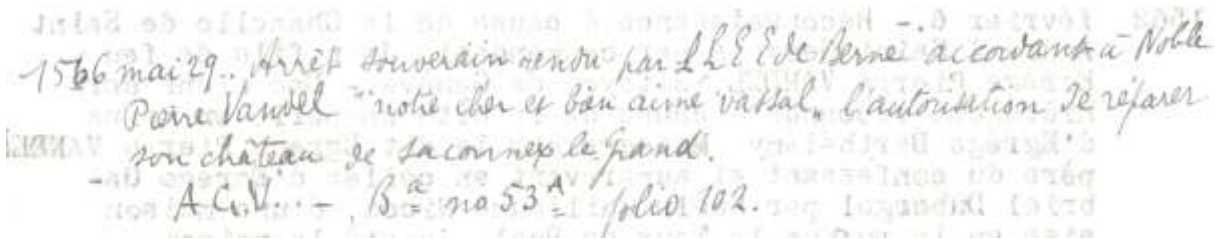 1566 mai 29.. Arrêt souverain rendu par LLEE de Berne accordant à Noble
Pierre Vandel "notre cher et bien aimé vassal" l'autorisation de réparer
son château de Saconnex le grand.
- A.C.V. - Bª no 53ᴬ folio 102.